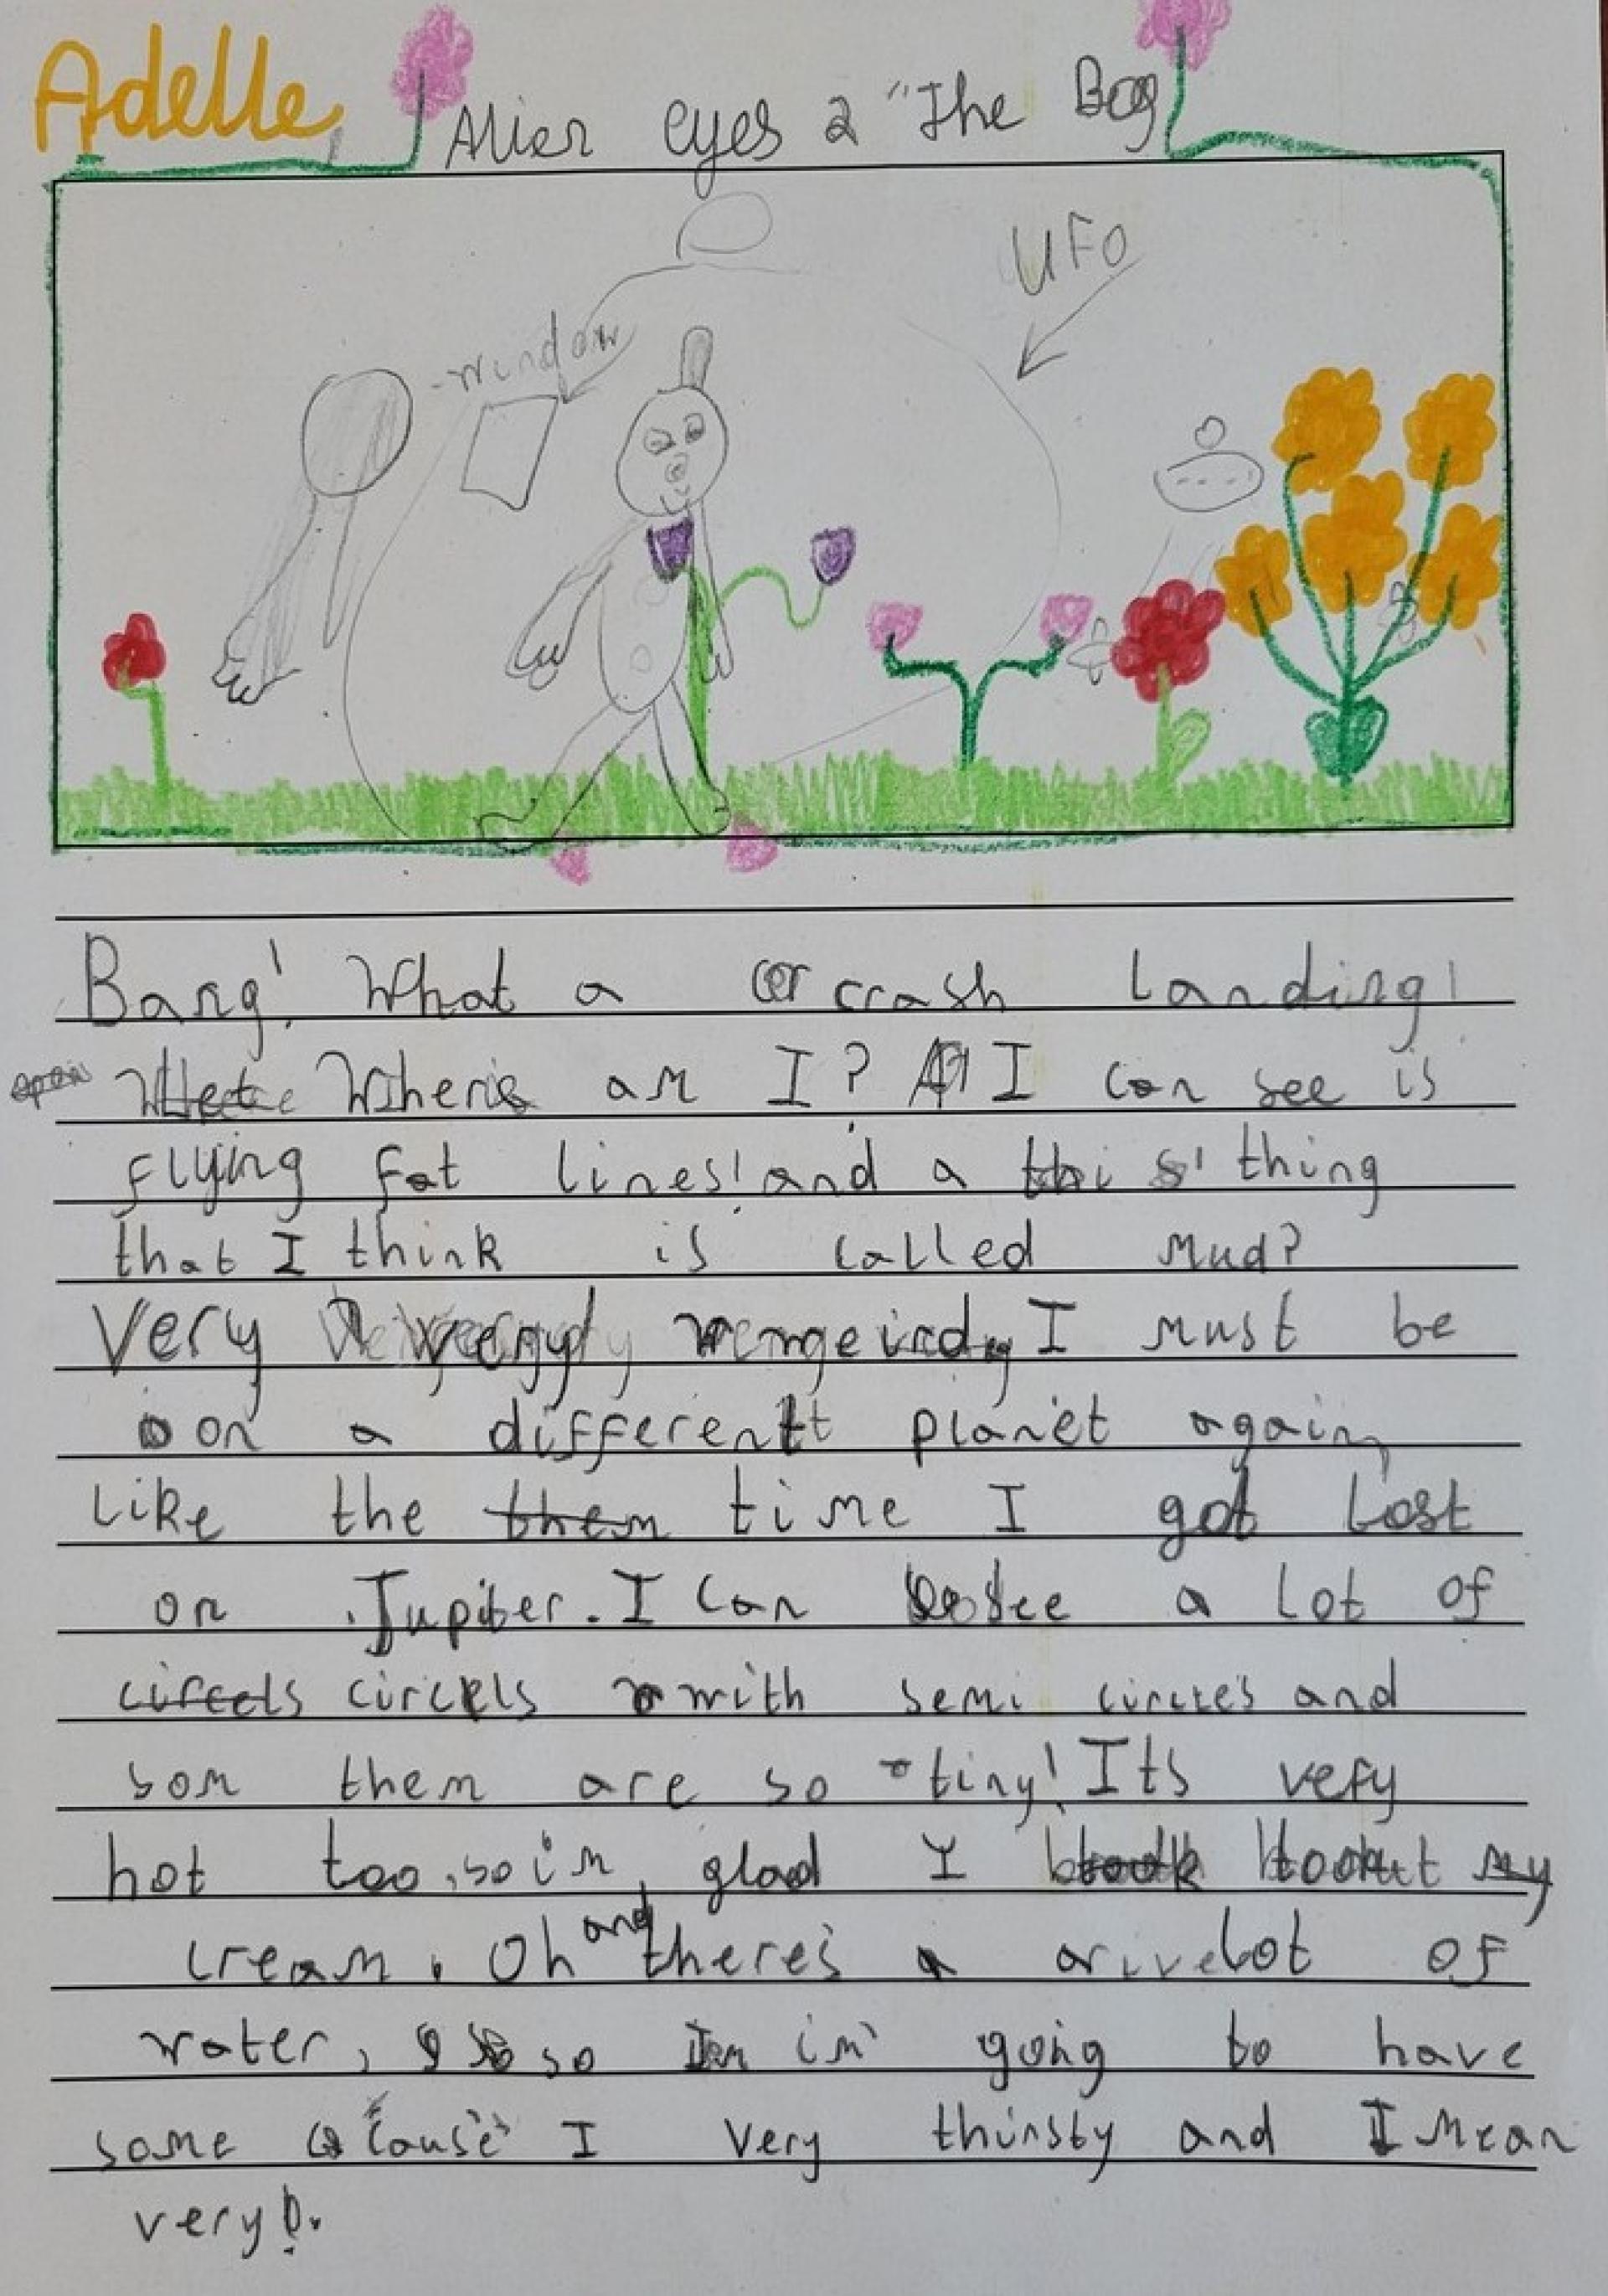 Adelle
Alien eyes 2 "The Bog
UFO
window
Bang! What a crash landing!
Where am I? All I can see is
flying fat lines! and a thing
that I think is called mud?
Very very weird, I must be
on a different planet again,
like the time I got lost
on Jupiter. I can see a lot of
circels with semi circles and
som them are so tiny! Its very
hot too, so im glad I
cream. Oh and there's a lot of
water, so im going to have
some 'cause I very thirsty and I mean
very!.